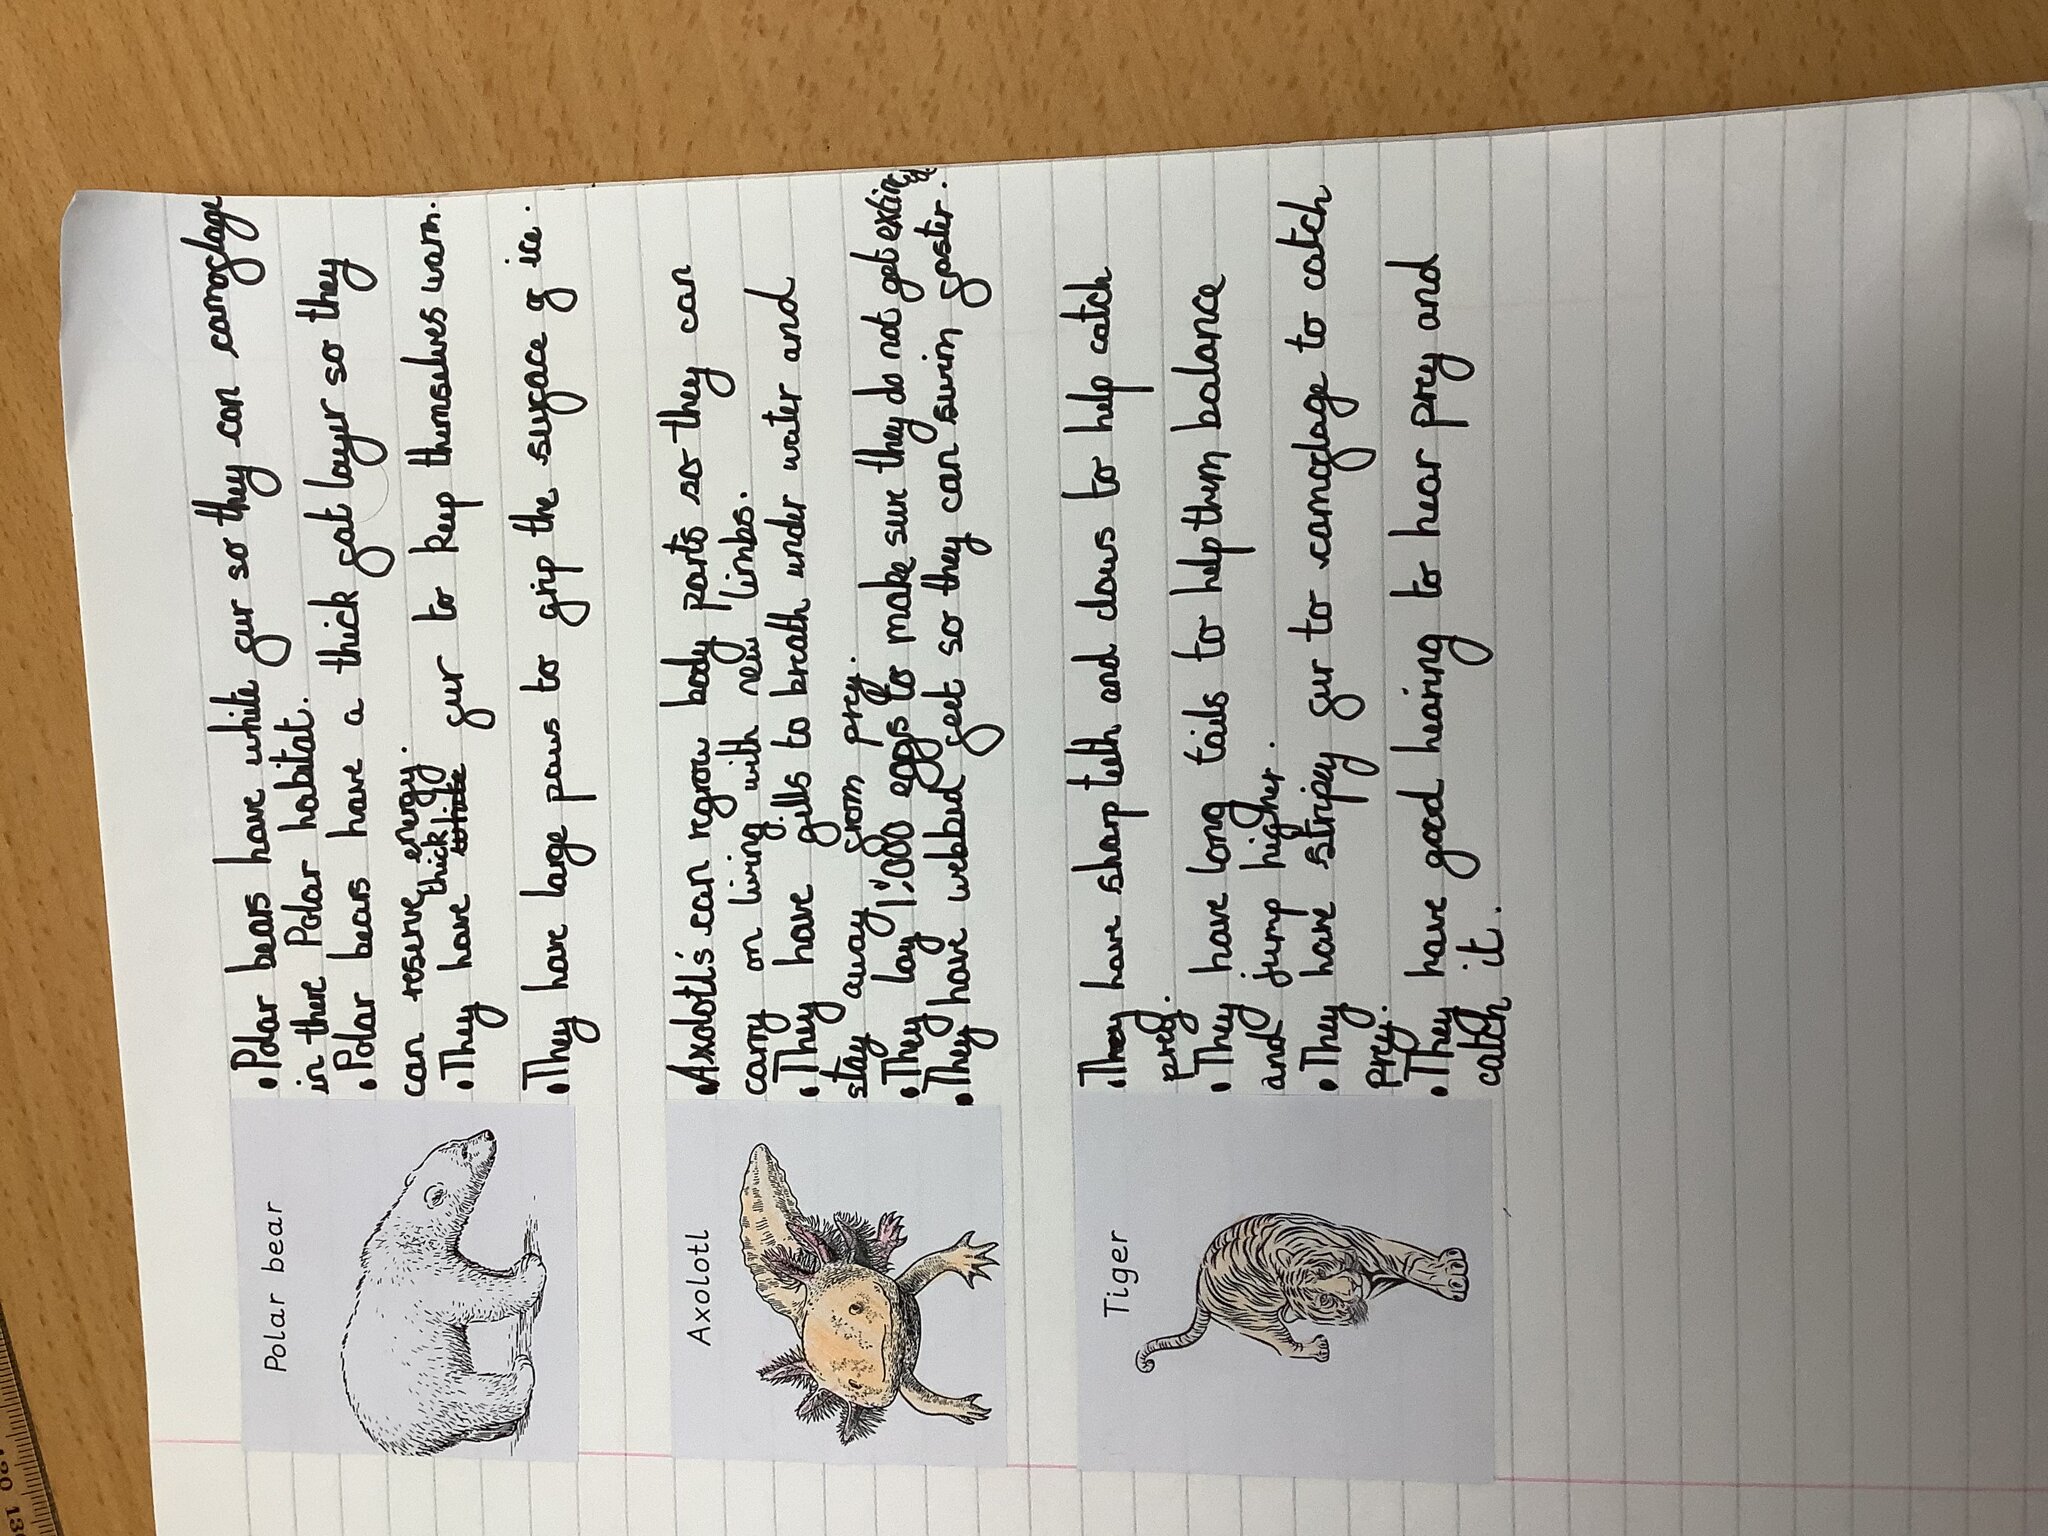 Polar bear
• Polar bears have white fur so they can camoflage
in there Polar habitat.
• Polar bears have a thick fat layer so they
can reserve energy.
• They have thick white fur to keep themselves warm.
• They have large paws to grip the surface of ice.
Axolotl
• Axolotl's can regrow body parts so they can
carry on living with new limbs.
• They have gills to breath under water and
stay away from prey.
• They lay 1,000 eggs to make sure they do not get extinct.
• They have webbed feet so they can swim faster.
Tiger
• They have sharp teeth and claws to help catch
prey.
• They have long tails to help them balance
and jump higher.
• They have stripey fur to camoflage to catch
prey.
• They have good hearing to hear prey and
catch it.